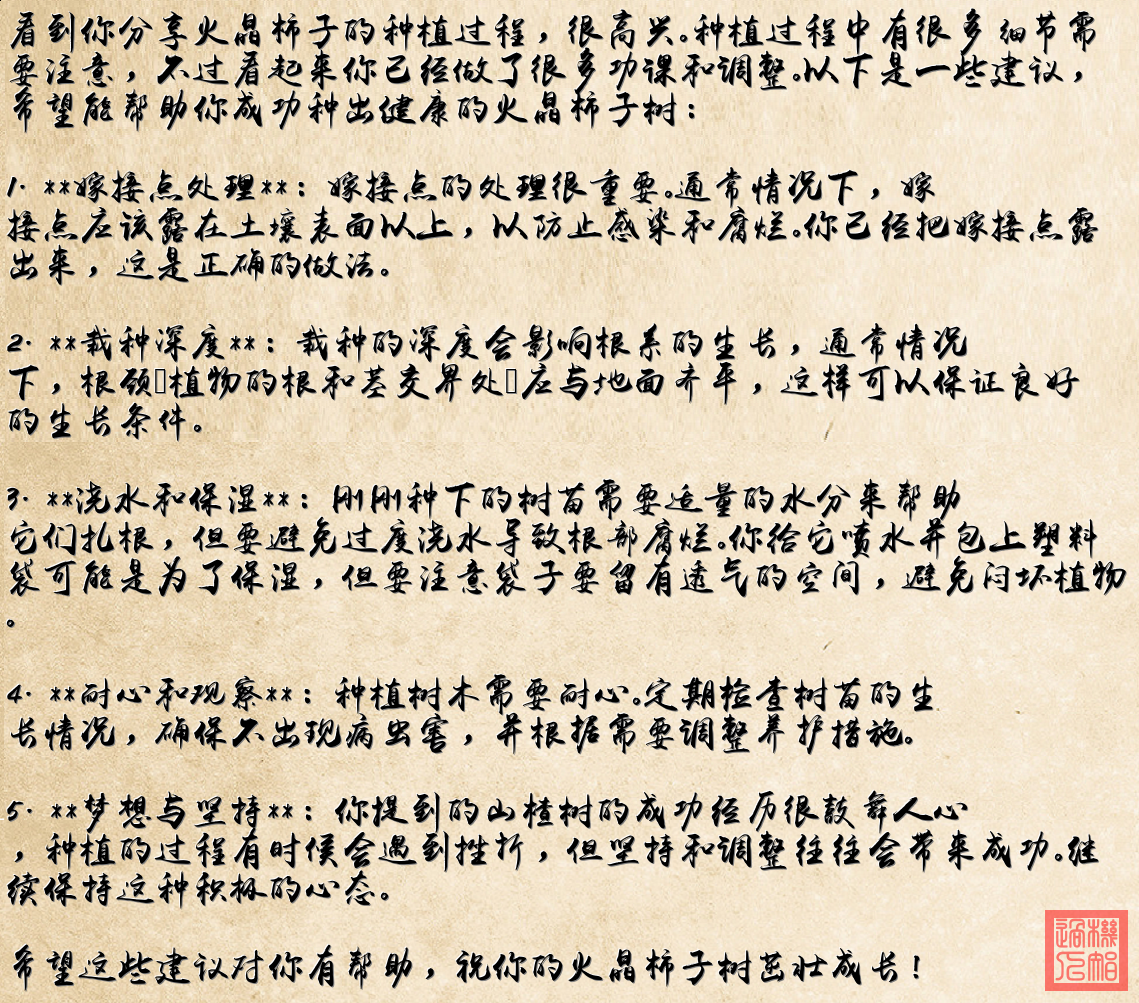 看到你分享火晶柿子的种植过程，很高兴。种植过程中有很多细节需
要注意，不过看起来你已经做了很多功课和调整。以下是一些建议，
希望能帮助你成功种出健康的火晶柿子树：
1. **嫁接点处理**：嫁接点的处理很重要。通常情况下，嫁
接点应该露在土壤表面以上，以防止感染和腐烂。你已经把嫁接点露
出来，这是正确的做法。
2. **栽种深度**：栽种的深度会影响根系的生长，通常情况
下，根颈▯植物的根和茎交界处▯应与地面齐平，这样可以保证良好
的生长条件。
3. **浇水和保湿**：刚刚种下的树苗需要适量的水分来帮助
它们扎根，但要避免过度浇水导致根部腐烂。你给它喷水并包上塑料
袋可能是为了保湿，但要注意袋子要留有透气的空间，避免闷坏植物
。
4. **耐心和观察**：种植树木需要耐心。定期检查树苗的生
长情况，确保不出现病虫害，并根据需要调整养护措施。
5. **梦想与坚持**：你提到的山楂树的成功经历很鼓舞人心
，种植的过程有时候会遇到挫折，但坚持和调整往往会带来成功。继
续保持这种积极的心态。
希望这些建议对你有帮助，祝你的火晶柿子树茁壮成长！